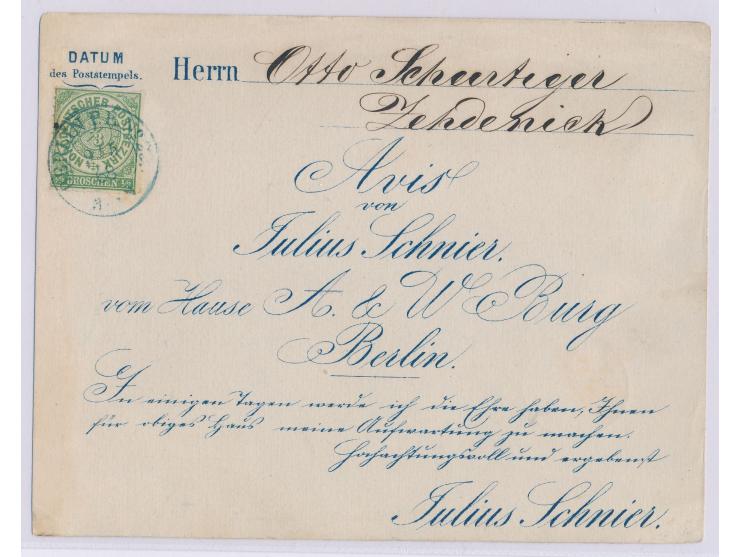 DATUM
des Poststempels.
Herrn Otto Scheertiger
Zehdenick
NORDDEUTSCHER POSTBEZIRK
1/3 GROSCHEN 1/3
Avis
von
Julius Schnier.
vom Hause A. & W Burg
Berlin.
In einigen Tagen werde ich die Ehre haben, Ihnen
für obiges Haus meine Aufwartung zu machen.
Hochachtungsvoll und ergebenst
Julius Schnier.